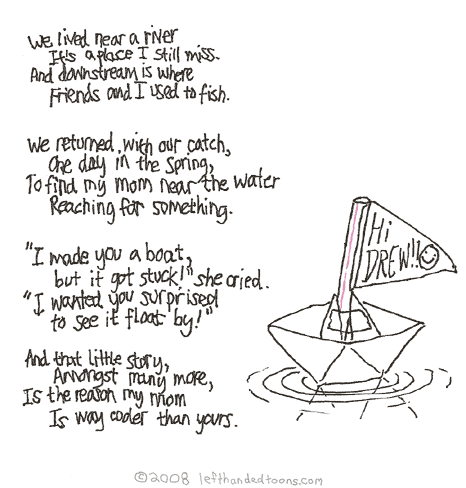 We lived near a river
It's a place I still miss.
And downstream is where
Friends and I used to fish.
We returned, with our catch,
One day in the Spring,
To find my mom near the water
Reaching for something.
"I made you a boat,
but it got stuck!" she cried.
"I wanted you surprised
to see it float by!"
And that little story,
Amongst many more,
Is the reason my mom
Is way cooler than yours.
Hi
DREW!!
©2008 lefthandedtoons.com